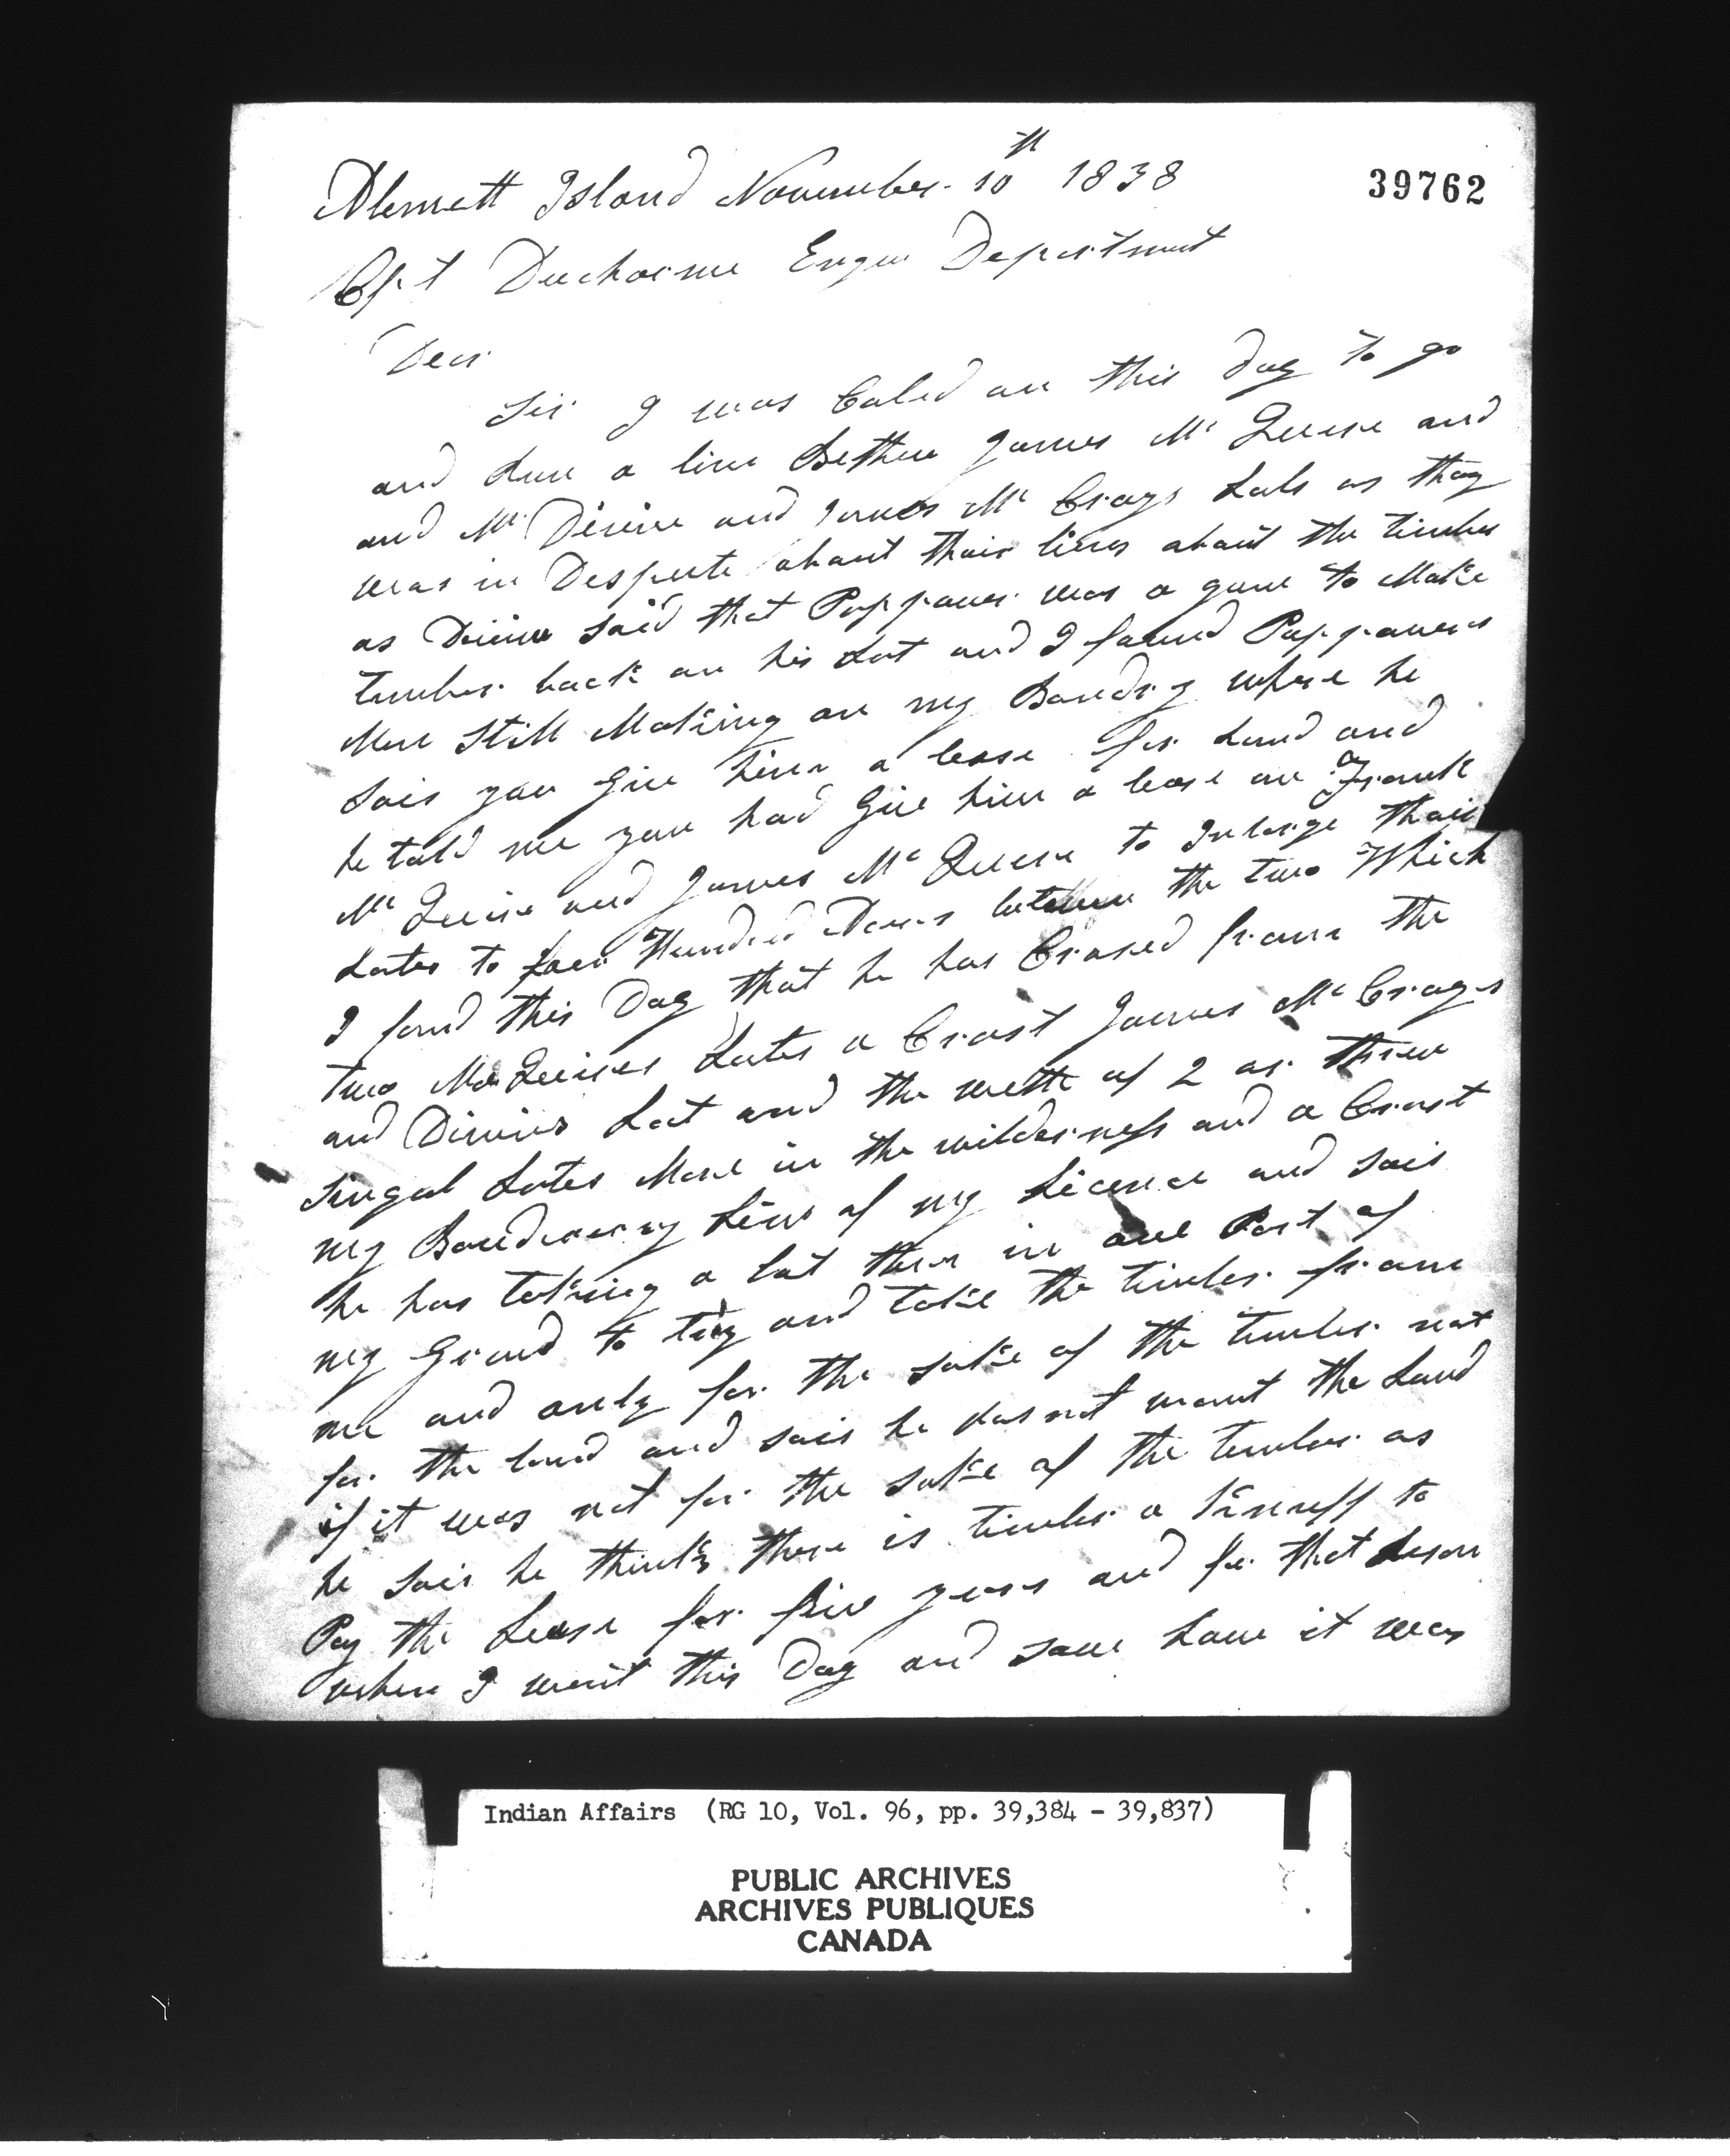 Alemett Island November 10th 1838
39762
Cpt Ducharme Engen Department
Dear
Sir I was Caled an this day to go
and Run a line Bethen James Mc Queese and
and Mr Divine and James Mc Crays Lots as thay
was in Despute abaut thair lines abaut the timber
as Divine said that Pappaner was a gone to Make
timber back an his Lot and I faund Pappaners
Men Still Making an my Baundry whare he
Sais you Give him a lease for Land and
he told me you had Give him a lease an Frank
Mc Queise and James Mc Queese to Inlarge thair
Lotes to Hundred between the two Which
I fond this Day that he has Crased fram the
two McQueises Lotes a Crast James Mc Crays
and Divines Lot and the weth of 2 ar three
Singal Lotes More in the wilderness and a Crast
my Baundrary Line of my Licence and sais
he has taking a lot thar in and Part of
my Ground to try and take the timber fram
me and anly for the sake of the timber not
for the land and sais he das not want the Land
if it was not for the sake of the timber as
he Sais he thinks thare is timber a to
Pay the Lease for five years and for that Reson
when I went this Day and saw how it was
Indian Affairs (RG 10, Vol. 96, pp. 39,384 - 39,837)
PUBLIC ARCHIVES
ARCHIVES PUBLIQUES
CANADA